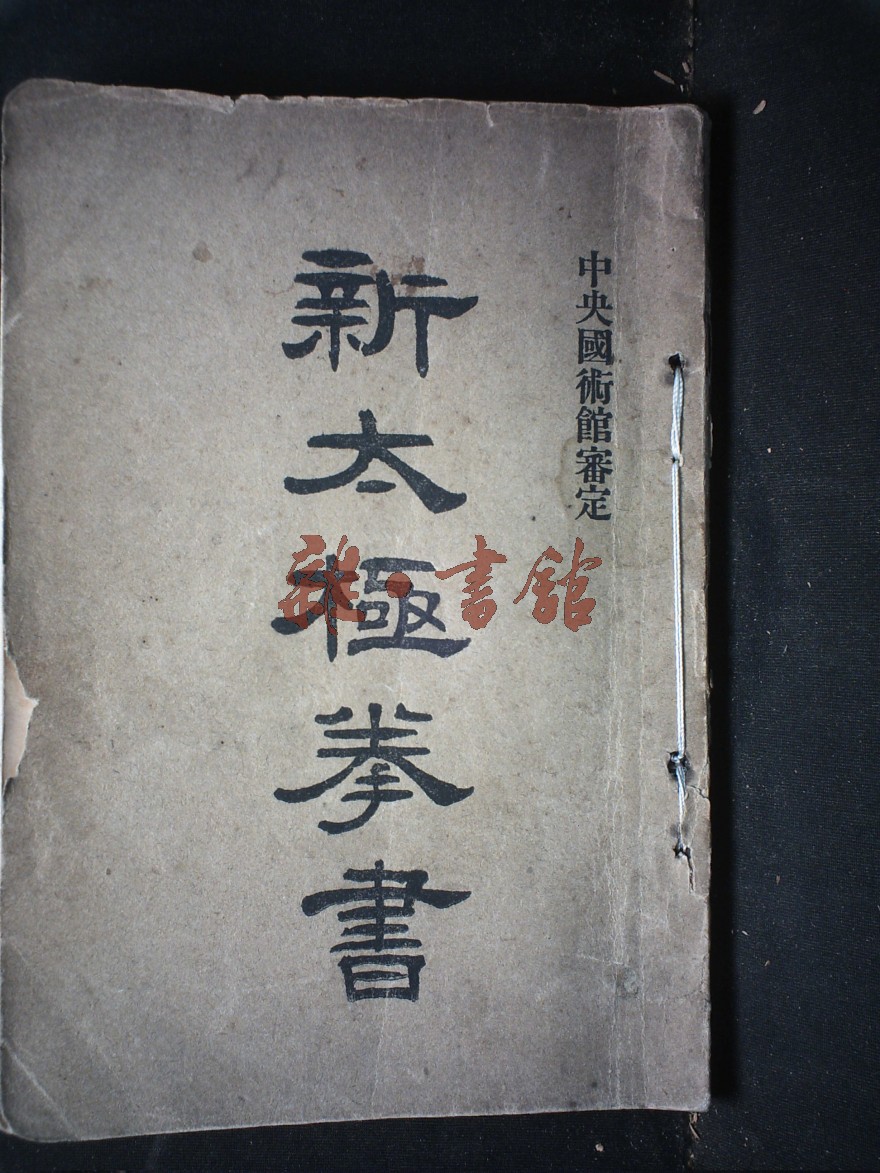 中央國術館審定
新太極拳書
雜·書館